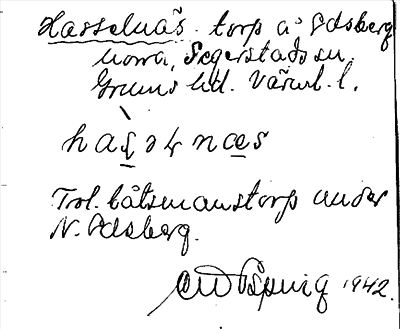 Hasselnäs torp å Edsberg
norra, Segerstads sn.
Grums hd. Värml. l.
has̱əɫnæ̱s
Trol. båtsmanstorp under
N. Edsberg.
1942.